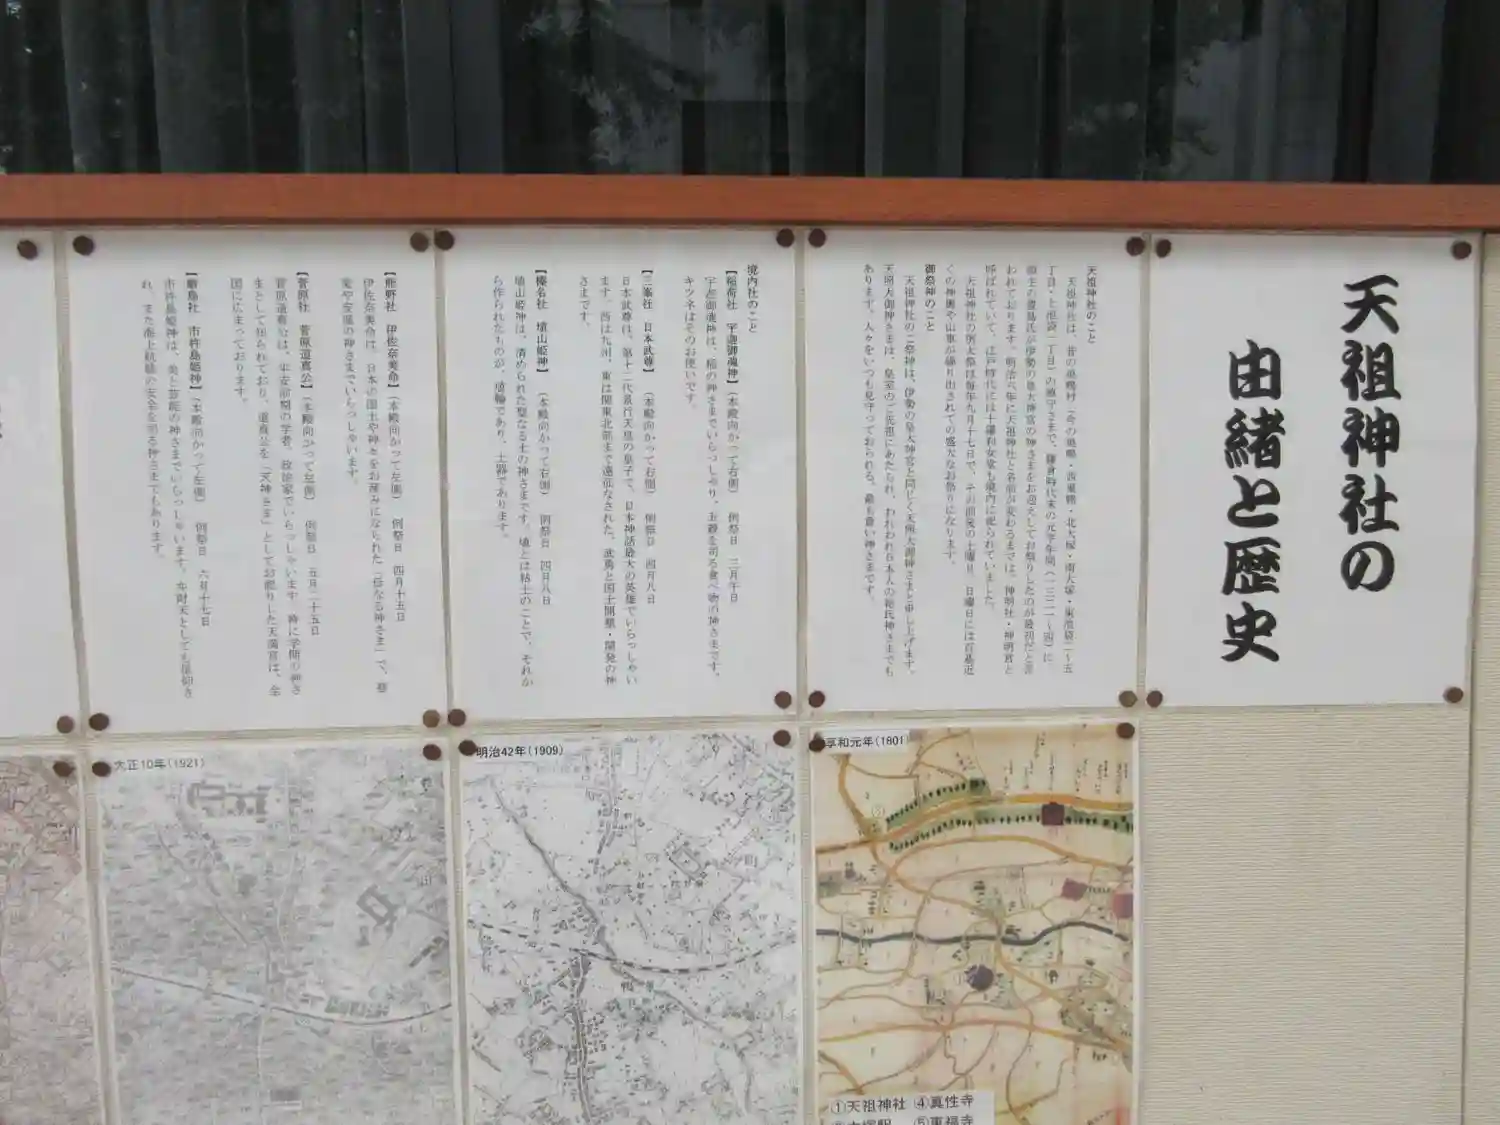 天祖神社の
由緒と歴史
天祖神社のこと
天祖神社は、昔の巣鴨村（今の巣鴨・西巣鴨・北大塚・南大塚・東池袋二～五
丁目・上池袋一丁目）の鎮守さまで、鎌倉時代末の元亨年間（一三二一～四）に
領主の豊島氏が伊勢の皇大神宮の神さまをお迎えしてお祭りしたのが最初だと言
われております。明治六年に天祖神社と名前が変わるまでは、神明社・神明宮と
呼ばれていて、江戸時代には十羅刹女堂も境内に祀られていました。
天祖神社の例大祭は毎年九月十七日で、その前後の土曜日、日曜日には百基近
くの神輿や山車が繰り出されての盛大なお祭りになります。
御祭神のこと
天祖神社のご祭神は、伊勢の皇大神宮と同じく天照大御神さまと申し上げます。
天照大御神さまは、皇室のご先祖にあたられ、われわれ日本人の総氏神さまでも
あります。人々をいつも見守っておられる、最も尊い神さまです。
境内社のこと
【稲荷社　宇迦御魂神】（本殿向かって右側）　例祭日　三月午日
宇迦御魂神は、稲の神さまでいらっしゃり、五穀を司る食べ物の神さまです。
キツネはそのお使いです。
【三峯社　日本武尊】（本殿向かって右側）　例祭日　四月八日
日本武尊は、第十二代景行天皇の皇子で、日本神話最大の英雄でいらっしゃい
ます。西は九州、東は関東北部まで遠征なされた、武勇と国土開墾・開発の神
さまです。
【榛名社　埴山姫神】（本殿向かって右側）　例祭日　四月八日
埴山姫神は、清められた聖なる土の神さまです。埴とは粘土のことで、それか
ら作られたものが、埴輪であり、土器であります。
【熊野社　伊佐奈美命】（本殿向かって左側）　例祭日　四月十五日
伊佐奈美命は、日本の国土や神々をお産みになられた「母なる神さま」で、
【菅原社　菅原道真公】（本殿向かって左側）　例祭日　五月二十五日
菅原道真公は、平安前期の学者、政治家でいらっしゃいます。特に学問の神さ
まとして知られており、道真公を「天神さま」としてお祀りした天満宮は、全
国に広まっております。
【厳島社　市杵島姫神】（本殿向かって左側）　例祭日　六月十七日
市杵島姫神は、美と芸能の神さまでいらっしゃいます。弁財天としても信仰さ
れ、また海上航海の安全を司る神さまでもあります。
大正10年(1921)
明治42年(1909)
享和元年(1801)
①天祖神社 ④真性寺
⑤東福寺